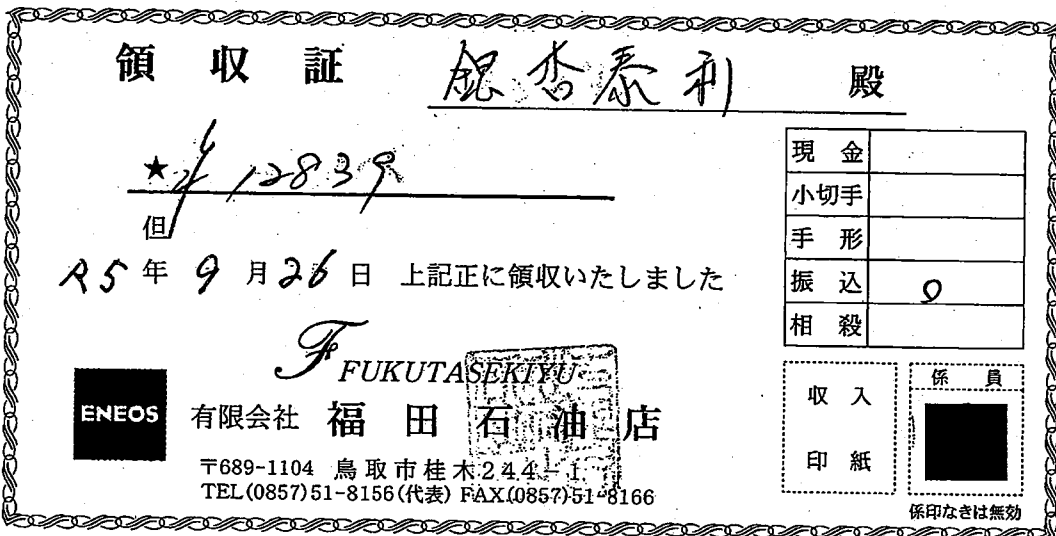 領収証 銀杏泰利 殿
★ ¥12839
但
R5年9月26日 上記正に領収いたしました
現金
小切手
手形
振込 ○
相殺
FUKUTASEKIYU
ENEOS 有限会社 福田石油店
〒689-1104 鳥取市桂木244-1
TEL(0857)51-8156(代表) FAX(0857)51-8166
収入
印紙
係員
係印なきは無効